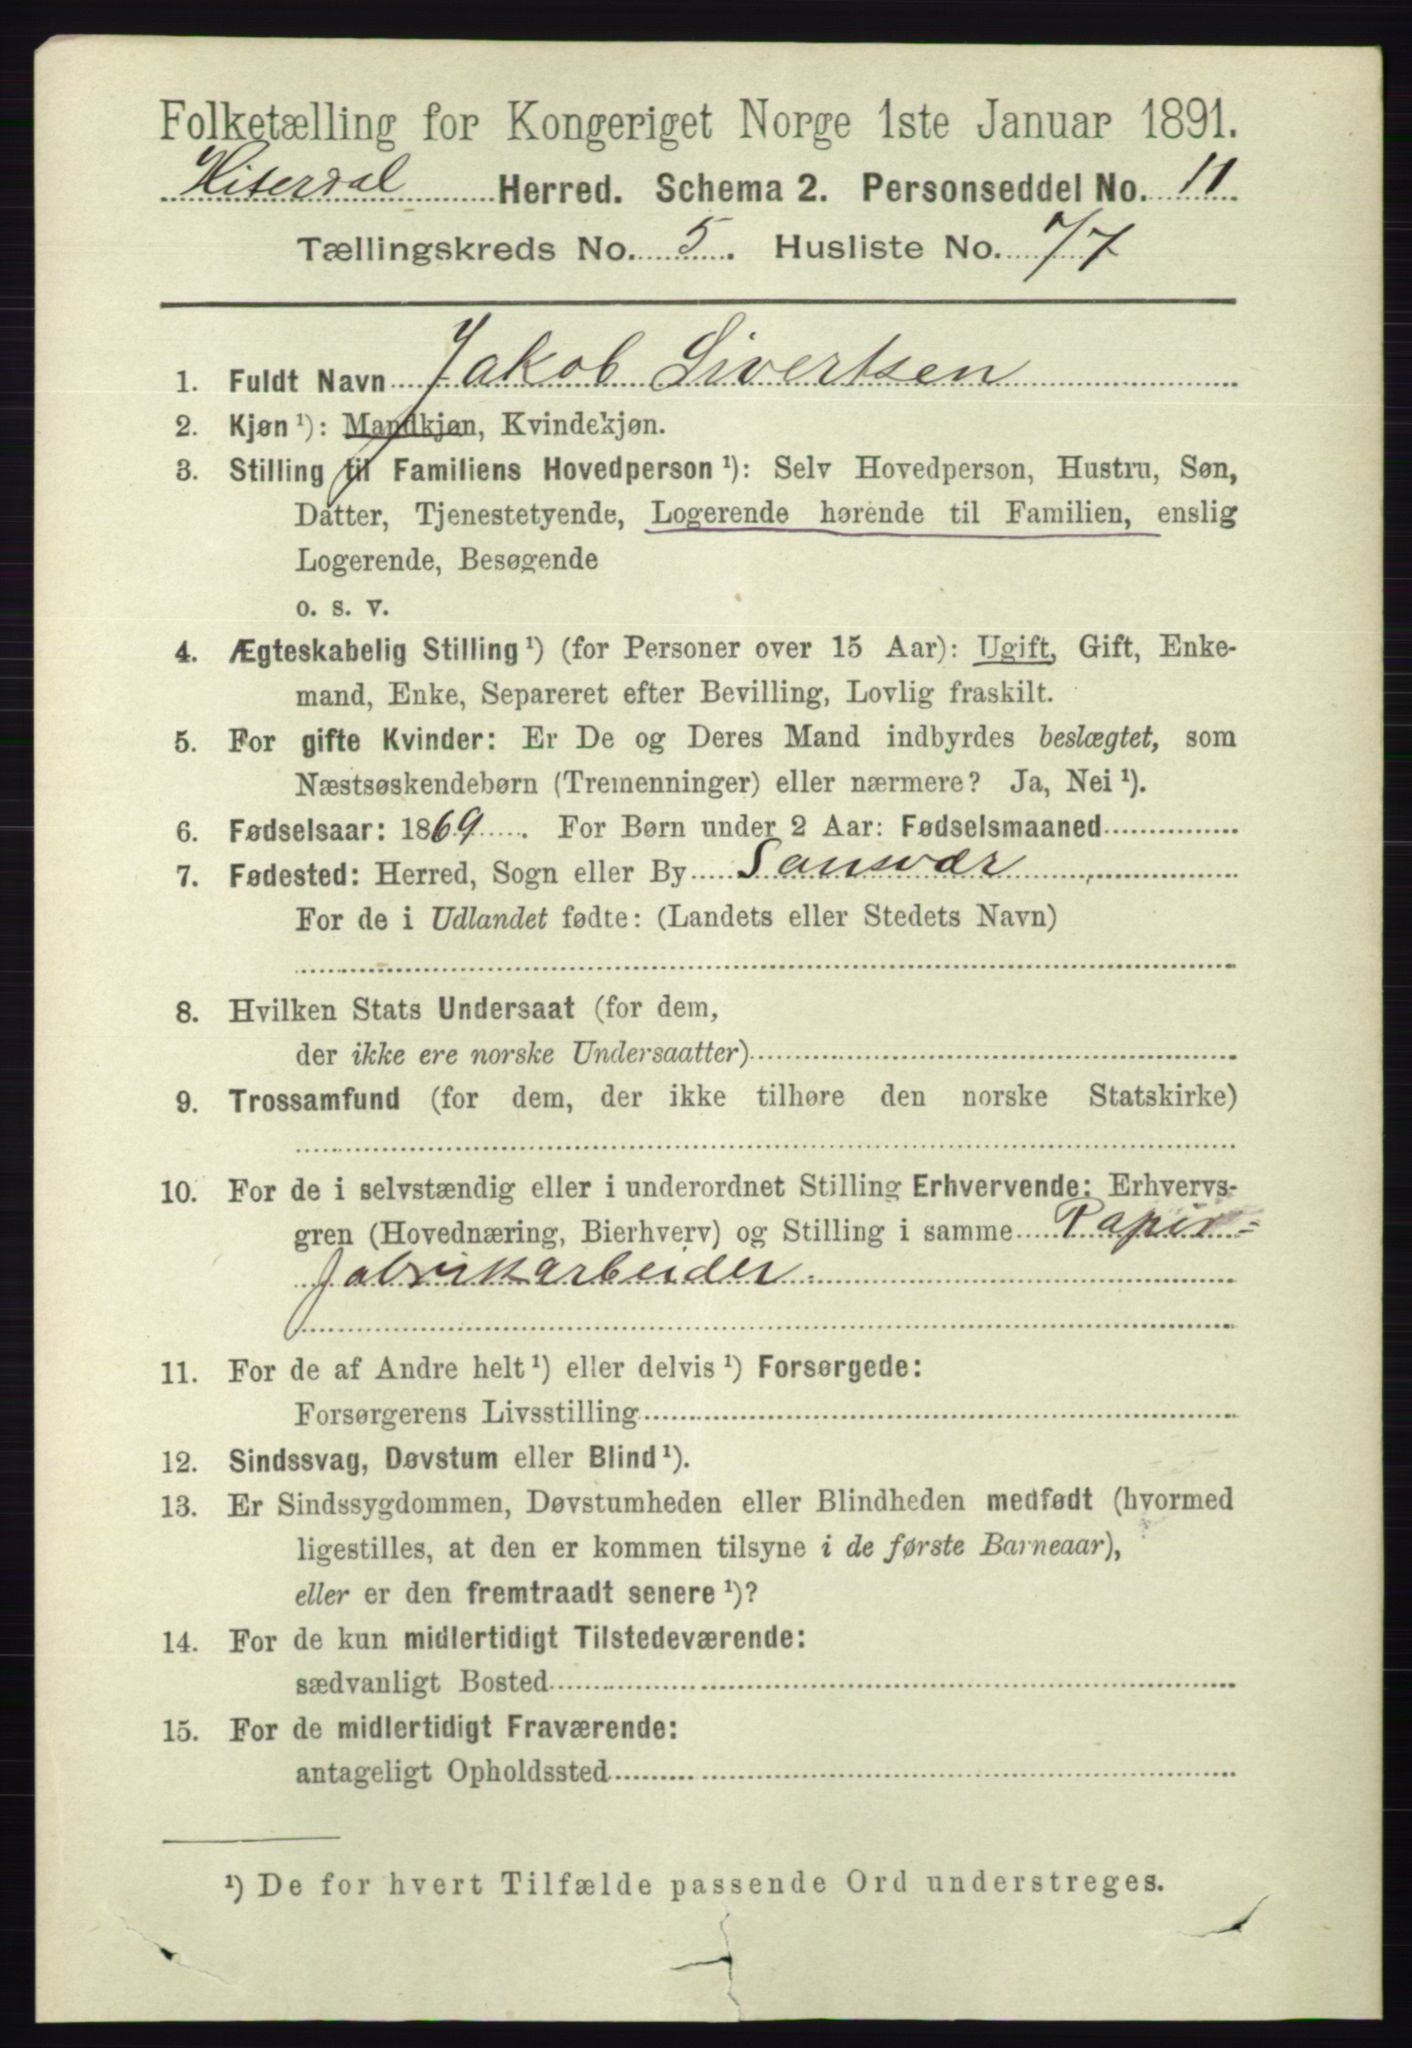 Folketælling for Kongeriget Norge 1ste Januar 1891.
Hiterdal Herred. Schema 2. Personseddel No. 11
Tællingskreds No. 5. Husliste No. 77
1. Fuldt Navn Jakob Sivertsen
2. Kjøn ¹): Mandkjøn, Kvindekjøn.
3. Stilling til Familiens Hovedperson ¹): Selv Hovedperson, Hustru, Søn,
Datter, Tjenestetyende, Logerende hørende til Familien, enslig
Logerende, Besøgende
o. s. v.
4. Ægteskabelig Stilling ¹) (for Personer over 15 Aar): Ugift, Gift, Enke-
mand, Enke, Separeret efter Bevilling, Lovlig fraskilt.
5. For gifte Kvinder: Er De og Deres Mand indbyrdes beslægtet, som
Næstsøskendebørn (Tremenninger) eller nærmere? Ja, Nei ¹).
6. Fødselsaar: 1869. For Børn under 2 Aar: Fødselsmaaned
7. Fødested: Herred, Sogn eller By Sansvær
For de i Udlandet fødte: (Landets eller Stedets Navn)
8. Hvilken Stats Undersaat (for dem,
der ikke ere norske Undersaatter)
9. Trossamfund (for dem, der ikke tilhøre den norske Statskirke)
10. For de i selvstændig eller i underordnet Stilling Erhvervende: Erhvervs-
gren (Hovednæring, Bierhverv) og Stilling i samme Papir=
fabrikarbeider
11. For de af Andre helt ¹) eller delvis ¹) Forsørgede:
Forsørgerens Livsstilling
12. Sindssvag, Døvstum eller Blind ¹).
13. Er Sindssygdommen, Døvstumheden eller Blindheden medfødt (hvormed
ligestilles, at den er kommen tilsyne i de første Barneaar),
eller er den fremtraadt senere ¹)?
14. For de kun midlertidigt Tilstedeværende:
sædvanligt Bosted
15. For de midlertidigt Fraværende:
antageligt Opholdssted
¹) De for hvert Tilfælde passende Ord understreges.